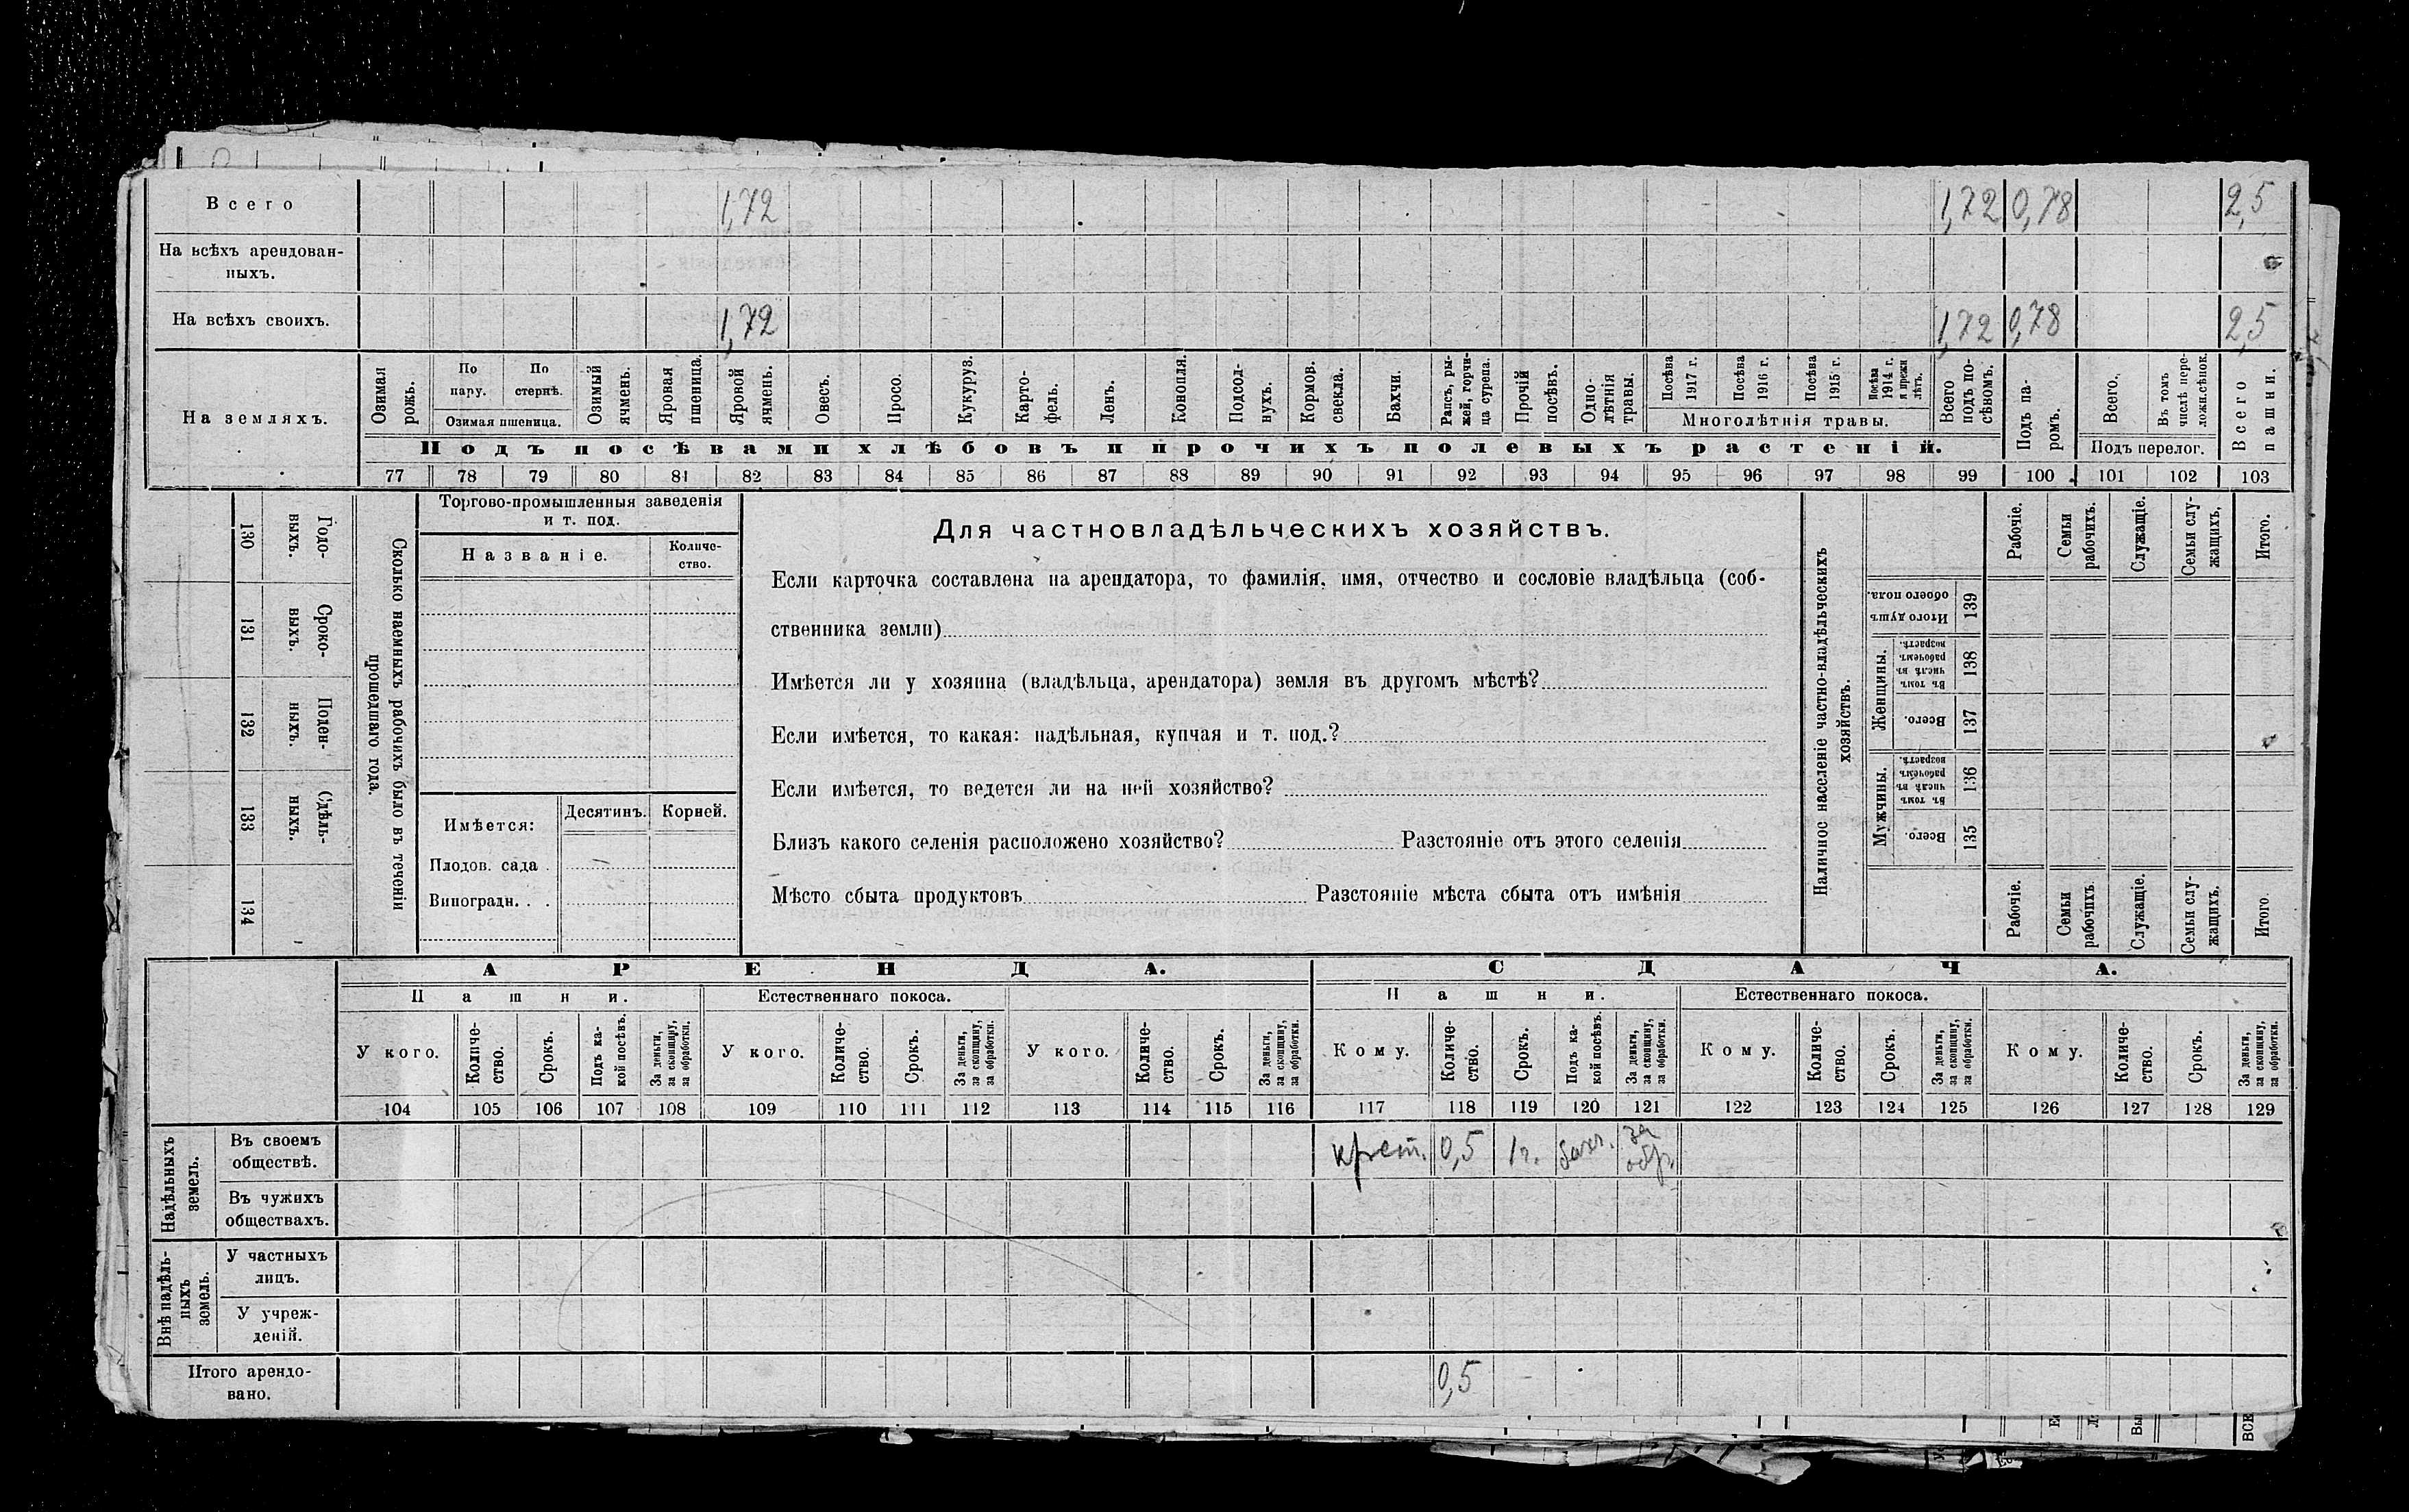 Всего 1,72 1,72 0,78 2,5
На всѣхъ арендован-
ныхъ.
На всѣхъ своихъ. 1,72 1,72 0,78 2,5
На земляхъ.
Озимая рожь.
По пару.
По стернѣ.
Озимая пшеница.
Озимый ячмень.
Яровая пшеница.
Яровой ячмень.
Овесъ.
Просо.
Кукуруз.
Карто-
фель.
Ленъ.
Конопля.
Подсол-
нухъ.
Кормов. свекла.
Бахчи.
Рапсъ, ры-
жей, горчи-
ца сурепа.
Прочій посѣвъ.
Одно-
лѣтнія травы.
Посѣва 1917 г.
Посѣва 1916 г.
Посѣва 1915 г.
Посѣва 1914 г. и прежн лѣтъ.
Многолѣтнія травы.
Всего подъ по-
сѣвомъ.
Подъ па-
ромъ.
Всего.
Въ томъ числѣ пере-
ложн.сѣнок.
Подъ перелог.
Всего пашни.
Подъ посѣвами хлѣбовъ и прочихъ полевыхъ растеній.
77 78 79 80 81 82 83 84 85 86 87 88 89 90 91 92 93 94 95 96 97 98 99 100 101 102 103
Сколько наемныхъ рабочихъ было въ теченіи
прошедшаго года.
Годо-
выхъ.
130
Сроко-
выхъ.
131
Поден-
ныхъ.
132
Сдѣль-
ныхъ.
133
134
Торгово-промышленныя заведенія
и т. под.
Названіе.
Количе-
ство.
Имѣется: Десятинъ. Корней.
Плодов. сада .
Виноградн. . .
Для частновладѣльческихъ хозяйствъ.
Если карточка составлена на арендатора, то фамилія, имя, отчество и сословіе владѣльца (соб-
ственника земли)
Имѣется ли у хозяина (владѣльца, арендатора) земля въ другомъ мѣстѣ?
Если имѣется, то какая: надѣльная, купчая и т. под.?
Если имѣется, то ведется ли на ней хозяйство?
Близъ какого селенія расположено хозяйство? Разстояніе отъ этого селенія
Мѣсто сбыта продуктовъ Разстояніе мѣста сбыта отъ имѣнія
Наличное населеніе частно-владѣльческихъ
хозяйствъ.
Рабочіе.
Семьи рабочихъ.
Служащіе.
Семьи слу-
жащихъ.
Итого.
Итого душъ обоего пола. 139
Женщины.
Въ томъ числѣ въ рабочемъ возрастѣ. 138
Всего. 137
Мужчины.
Въ томъ числѣ въ рабочемъ возрастѣ. 136
Всего. 135
Рабочіе.
Семьи рабочихъ.
Служащіе.
Семьи слу-
жащихъ.
Итого.
АРЕНДА. СДАЧА.
Пашни. Естественнаго покоса. Пашни. Естественнаго покоса.
У кого.
Количе-
ство.
Срокъ.
Подъ ка-
кой посѣвъ.
За деньги,
за скопщину,
за обработки.
У кого.
Количе-
ство.
Срокъ.
За деньги,
за скопщину,
за обработки.
У кого.
Количе-
ство.
Срокъ.
За деньги,
за скопщину,
за обработки.
Кому.
Количе-
ство.
Срокъ.
Подъ ка-
кой посѣвъ.
За деньги,
за скопщину,
за обработки.
Кому.
Количе-
ство.
Срокъ.
За деньги,
за скопщину,
за обработки.
Кому.
Количе-
ство.
Срокъ.
За деньги,
за скопщину,
за обработки.
104 105 106 107 108 109 110 111 112 113 114 115 116 117 118 119 120 121 122 123 124 125 126 127 128 129
Надѣльныхъ
земель.
Въ своемъ
обществѣ.
крест. 0,5 1 г. бахч. за
обр.
Въ чужихъ
обществахъ.
Внѣ надѣль-
ныхъ
земель.
У частныхъ
лицъ.
У учреж-
деній.
Итого арендо-
вано.
0,5